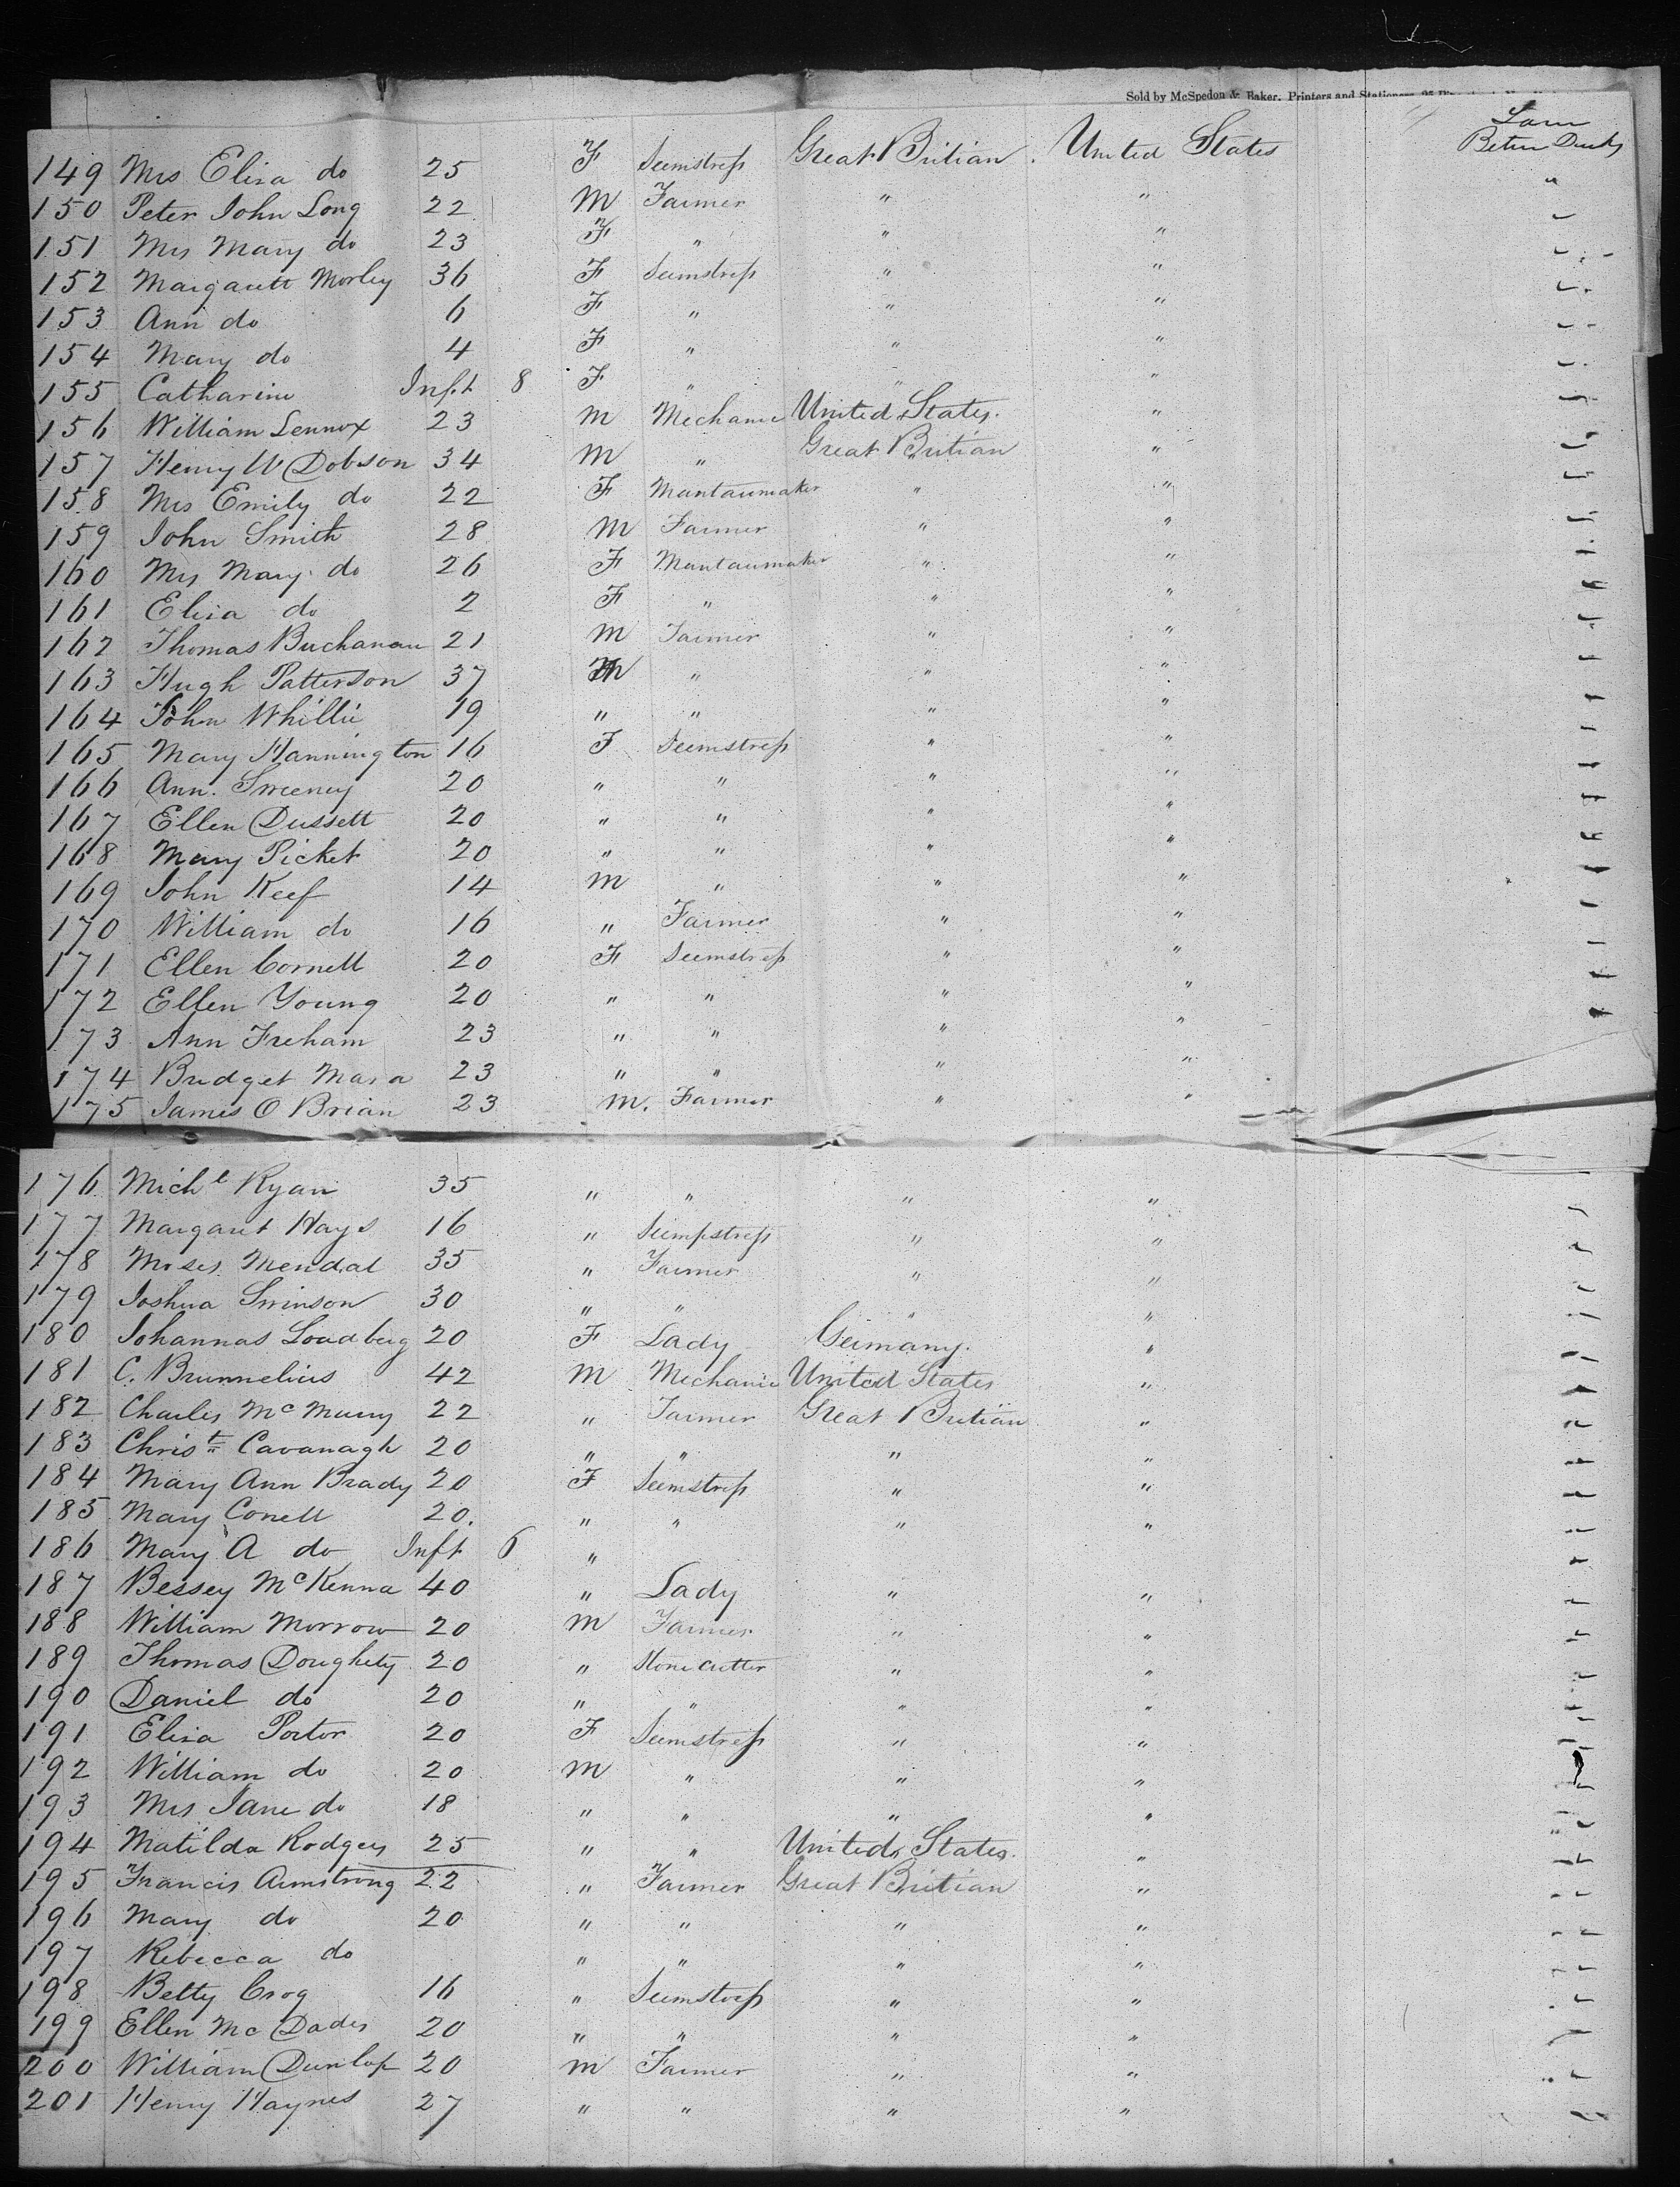 Sold by McSpedon & Baker, Printers and Stationers, 25
149 Mrs Eliza do 25 F Seemstress Great Britian. United States Betwn Decks
150 Peter John Long 22 M Farmer " " "
151 Mrs Mary do 23 F " " "
152 Margarett Morley 36 F Seemstress " "
153 Ann do 6 F " " "
154 Mary do 4 F " " "
155 Catharine Inft 8 F " " "
156 William Lennox 23 M Mechanic United States. "
157 Henry W Dobson 34 M " Great Britian "
158 Mrs Emily do 22 F Mantaumaker " "
159 John Smith 28 M Farmer " "
160 Mrs Mary do 26 F Mantaumaker " "
161 Eliza do 2 F " " "
162 Thomas Buchanan 21 M Farmer " "
163 Hugh Patterson 37 M " " "
164 John Whillie 19 " " " "
165 Mary Hannington 16 F Seemstress " "
166 Ann. Sweeney 20 " " " "
167 Ellen Dussett 20 " " " "
168 Mary Picket 20 " " " "
169 John Keef 14 M " " "
170 William do 16 " Farmer " "
171 Ellen Cornell 20 F Seemstress " "
172 Ellen Young 20 " " " "
173 Ann Freham 23 " " " "
174 Bridget Mara 23 " " " "
175 James O Brian 23 M. Farmer " "
176 Michl Ryan 35 " " " "
177 Margaret Hays 16 " Seempstress " "
178 Moses Mendal 35 " Farmer " "
179 Joshua Swinson 30 " " " "
180 Johannas Loadberg 20 F Lady Germany. "
181 C. Brunnelius 42 M Mechanic United States "
182 Charles McMurry 22 " Farmer Great Britian "
183 Christ Cavanagh 20 " " " "
184 Mary Ann Brady 20 F Seemstress " "
185 Mary Conell 20. " " " "
186 Mary A do Inft 6 "
187 Bessey McKenna 40 " Lady " "
188 William Morrow 20 M Farmer " "
189 Thomas Doughety 20 " Stone Cutter " "
190 Daniel do 20 " " " "
191 Eliza Portor 20 F Seemstress " "
192 William do 20 M " " "
193 Mrs Jane do 18 " " " "
194 Matilda Rodgers 25 " " United States. "
195 Francis Armstrong 22 " Farmer Great Britian "
196 Mary do 20 " " " "
197 Rebecca do " " " "
198 Betty Crog 16 " Seemstress " "
199 Ellen Mc Dades 20 " " " "
200 William Dunlop 20 M Farmer " "
201 Henry Haynes 27 " " " "